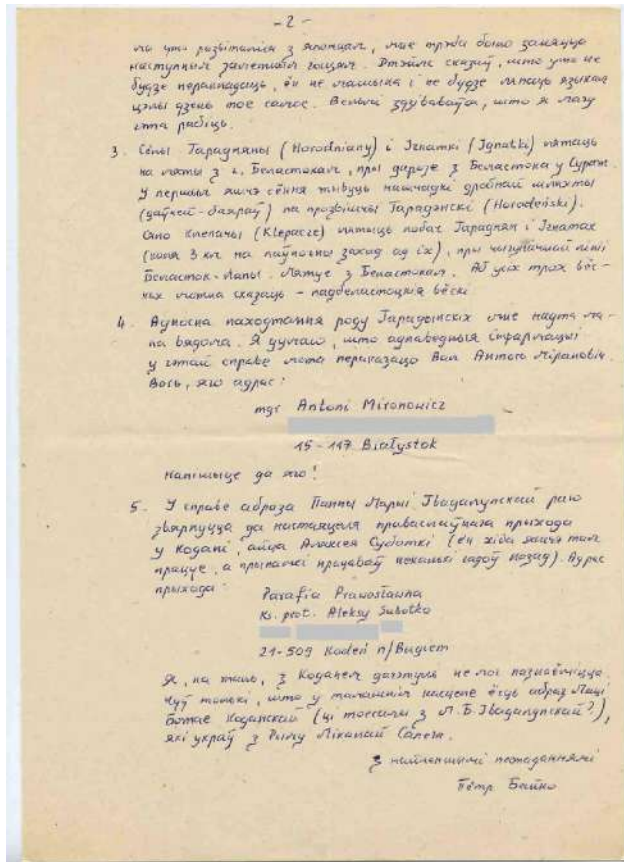 - 2 -
мы ўжо развіталіся з японцам, мне трэба было заняцца
наступным залётным госцям. Втэйлс сказаў, што ўжо не
будзе перакладаць, ён не машына і не будзе мяць языкам
цэлы дзень тое самае. Вельмі здзіўляўся, што я магу
гэта рабіць.
3. Сёлы Гарадняны (Horodniany) і Ігнаткі (Ignatki) ляжаць
на мяжы з г. Беластокам, пры дарозе з Беластока у Сураж.
У першым яшчэ сёння жывуць нашчадкі дробнай шляхты
(даўней - баяраў) па прозвішчы Гарадэнскі (Horodeński).
Сяло Клепачы (Klepacze) ляжыць побач Гараднян і Ігнатак
(каля 3 км на паўночны захад ад іх), пры чыгуначнай лініі
Беласток-Лапы. Мяжуе з Беластокам. Аб усіх трох вёс-
ках можна сказаць - падбеластоцкія вёскі.
4. Адносна паходжання роду Гарадэнскіх мне надта ма-
ла вядома. Я думаю, што адпаведныя інфармацыі
у гэтай справе можа пераказаць Вам Антось Міранович.
Вось, яго адрас:
mgr Antoni Mironowicz
15-117 Białystok
Напішыце да яго!
5. У справе абраза Панны Марыі Гвадалупскай раю
звярнуцца да настаяцеля праваслаўнага прыхода
у Кодані, айца Аляксея Суботкі (ён хіба яшчэ там
працуе, а прынамсі працаваў некалькі гадоў назад). Адрас
прыхода:
Parafia Prawosławna
Ks. prot. Aleksy Subotko
21-509 Kodeń n/Bugiem
Я, на жаль, з Коданем дагэтуль не мог пазнаёміцца.
Чуў толькі, што у тамашнім касцёле ёсць абраз Маці
Божае Кадэнскай (ці тоесамы з М.Б. Гвадалупскай?),
які украў з Рыму Мікалай Сапега.
З найлепшымі пожаданнямі
Пётр Байко